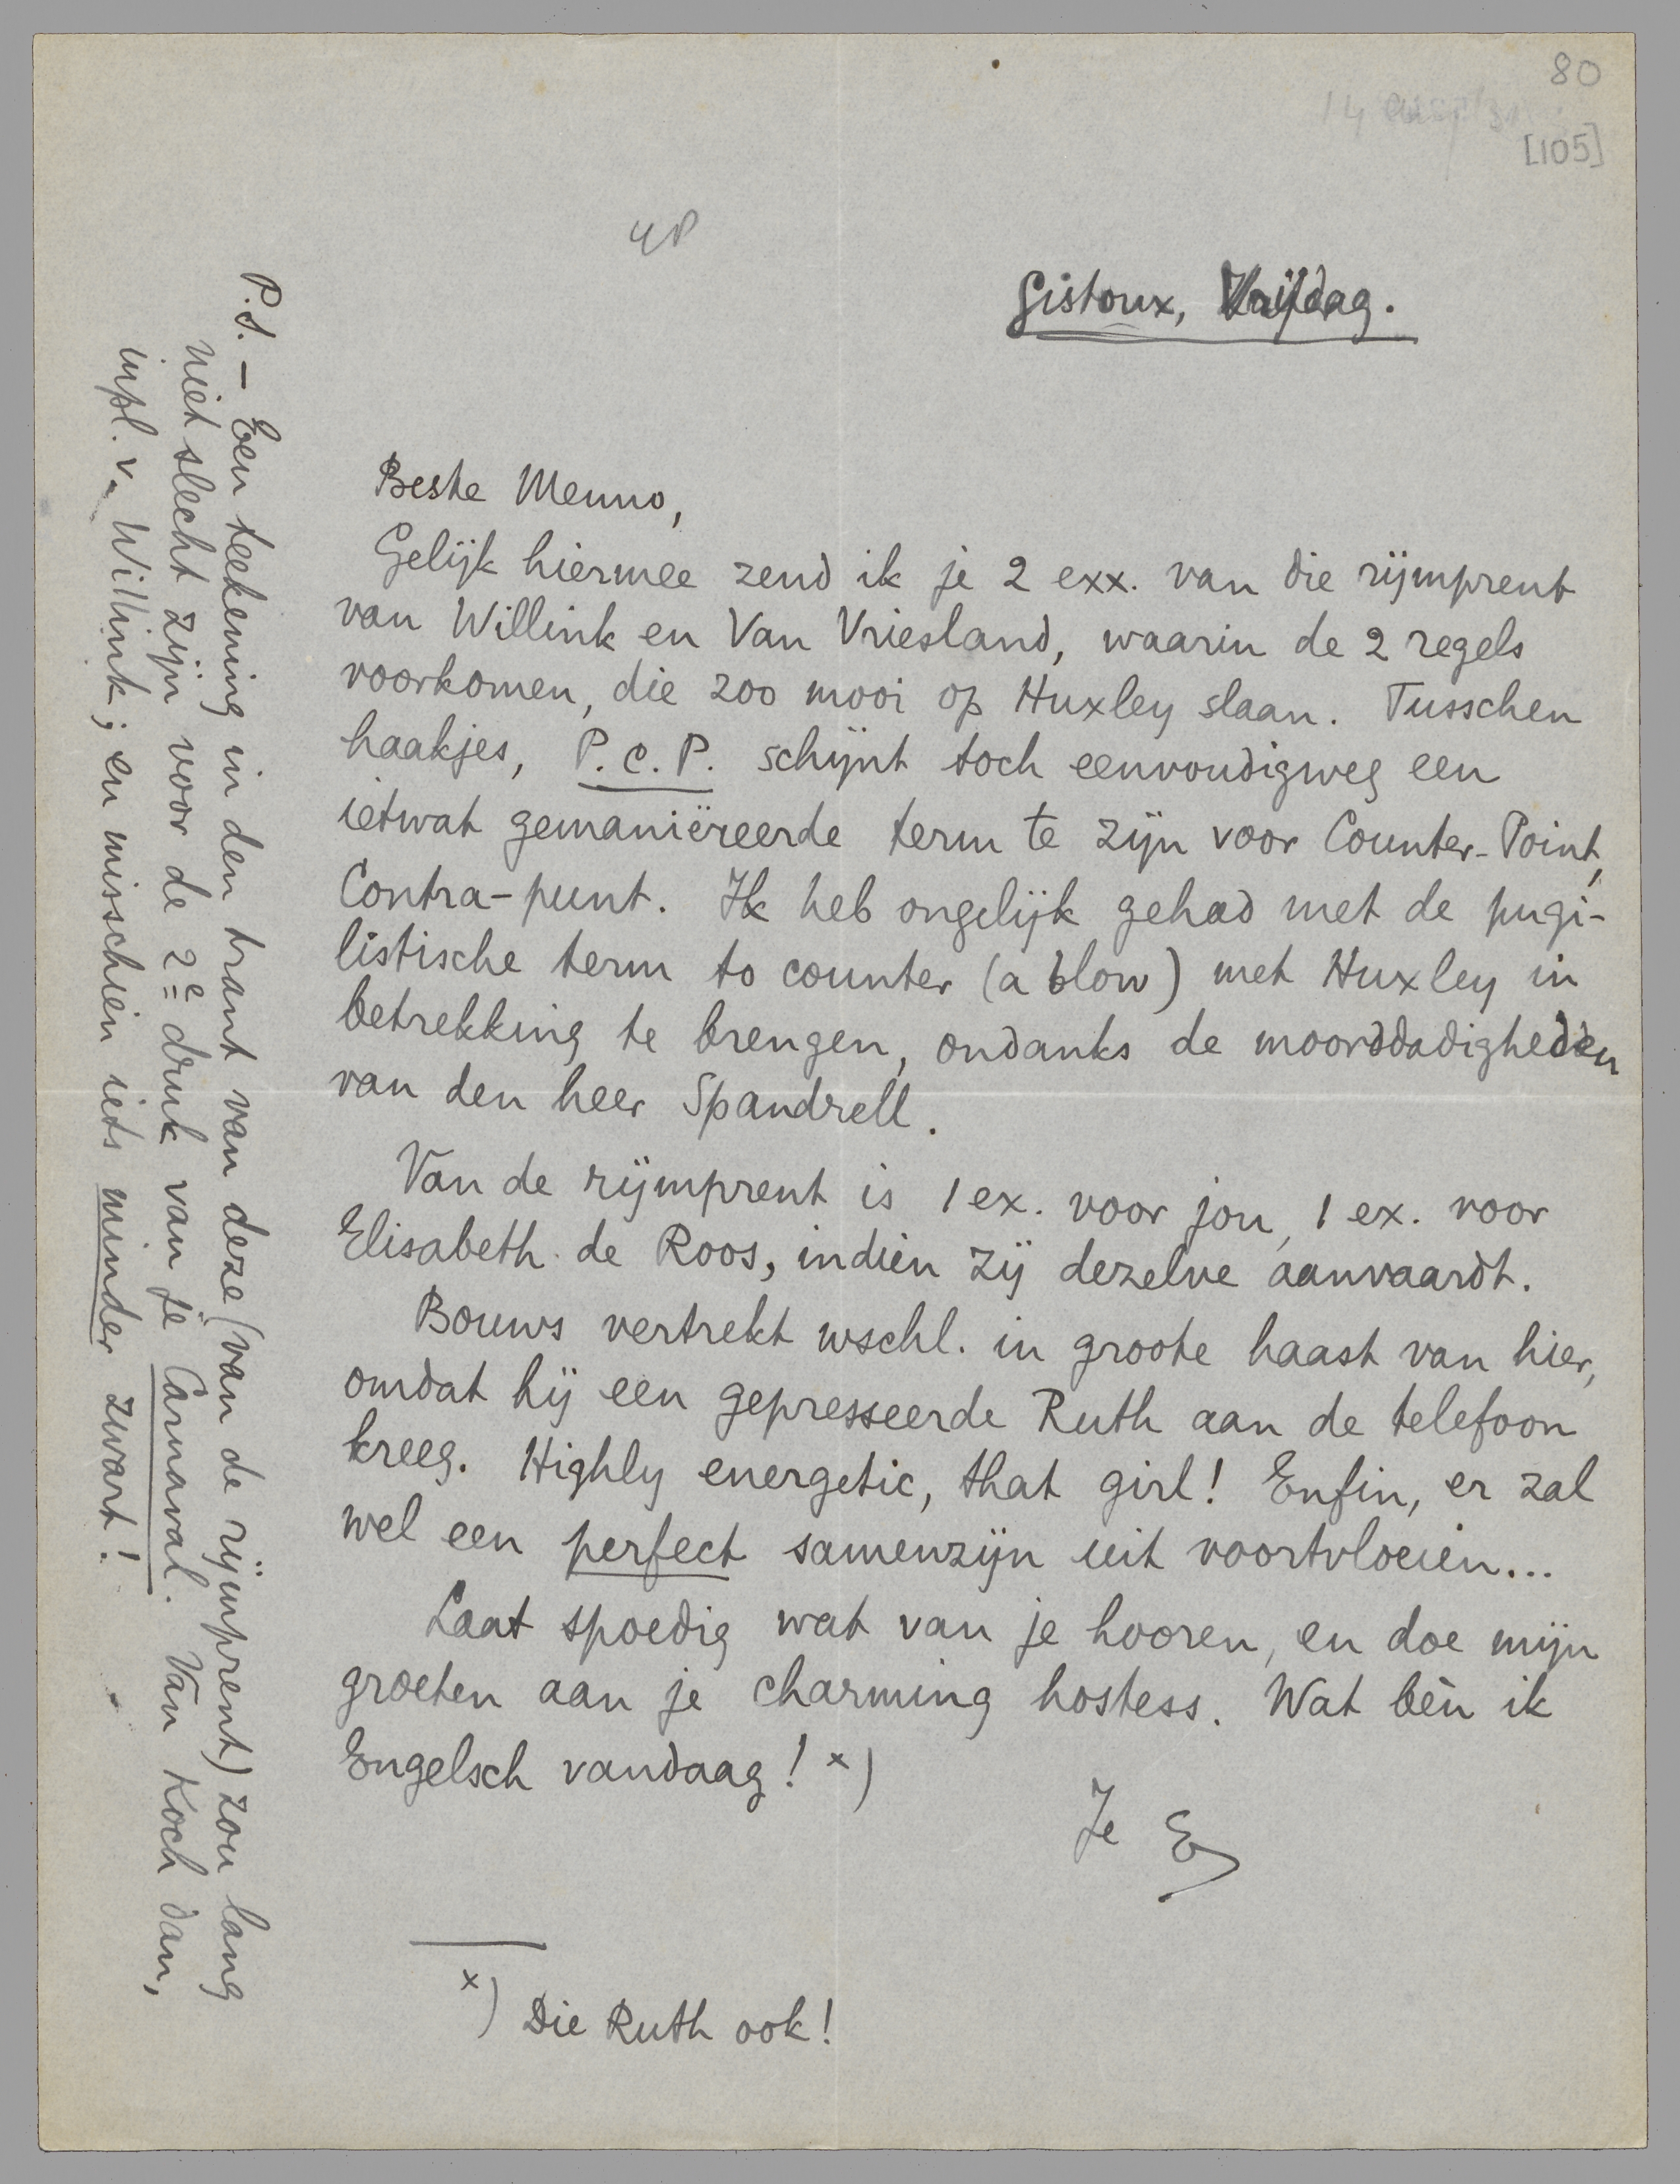 80
[105]
Gistoux, Vrijdag.
Beste Menno,
Gelijk hiermee zend ik je 2 exx. van die rijmprent
van Willink en Van Vriesland, waarin de 2 regels
voorkomen, die zoo mooi op Huxley slaan. Tusschen
haakjes, P.C.P. schijnt toch eenvoudigweg een
ietwat gemaniëreerde term te zijn voor Counter-Point,
Contra-punt. Ik heb ongelijk gehad met de pugi-
listische term to counter (a blow) met Huxley in
betrekking te brengen, ondanks de moorddadigheden
van den heer Spandrell.
Van de rijmprent is 1 ex. voor jou, 1 ex. voor
Elisabeth de Roos, indien zij dezelve aanvaardt.
Bouws vertrekt wschl. in groote haast van hier,
omdat hij een gepresseerde Ruth aan de telefoon
kreeg. Highly energetic, that girl! Enfin, er zal
wel een perfect samenzijn uit voortvloeien...
Laat spoedig wat van je hooren, en doe mijn
groeten aan je charming hostess. Wat bèn ik
Engelsch vandaag! x)
Je E
x) Die Ruth ook!
P.S. — Een teekening in den trant van deze (van de rijmprent) zou lang
niet slecht zijn voor de 2e druk van je Carnaval. Van Koch dan,
inpl. v. Willink; en misschien iets minder zwart!